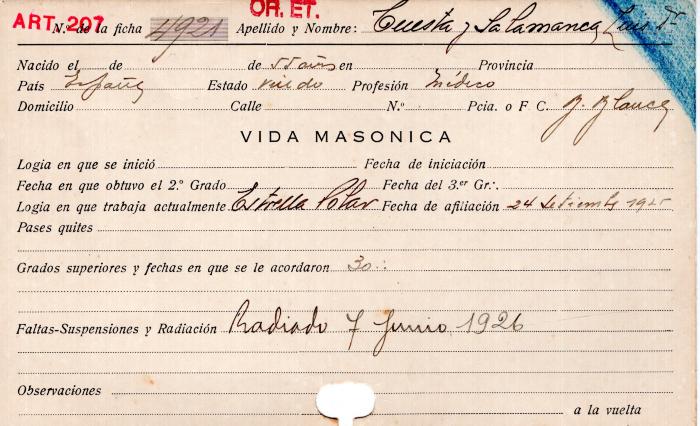 ART. 207 OR. ET.
N.º de la ficha 4921 Apellido y Nombre: Cuesta y Salamanca, Luis
Nacido el de de 55 años en Provincia
País España Estado viudo Profesión Médico
Domicilio Calle N.º Pcia. o F C. B. Blanca
VIDA MASONICA
Logia en que se inició Fecha de iniciación
Fecha en que obtuvo el 2.º Grado Fecha del 3.er Gr∴
Logia en que trabaja actualmente Estrella Polar Fecha de afiliación 24 setiembre
Pases quites
Grados superiores y fechas en que se le acordaron 30∴
Faltas-Suspensiones y Radiación Radiado 7 Junio 1926
Observaciones
a la vuelta